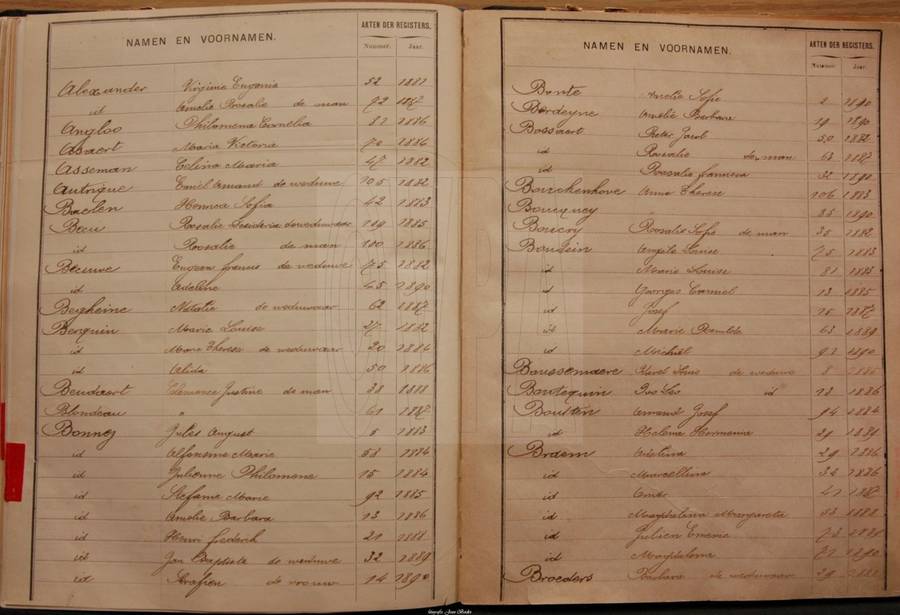 NAMEN EN VOORNAMEN.
AKTEN DER REGISTERS.
Nummer. Jaar.
Alexander Virginie Eugenia 52 1881
id Amelia Rosalie de man 72 1887
Angloo Philomena Cornelia 82 1886
Asaert Maria Victoria 70 1886
Asseman Celina Maria 47 1882
Autrique Emiel Amand de weduwe 105 1882
Baelen Henrica Sofia 42 1883
Becu Rosalie de weduwe 109 1885
id Rosalie de man 100 1886
Beeuwe Eugeen de weduwe 75 1882
id Adeline 45 1890
Begheine Natalie de weduwaar 62 1887
Berquin Marie Louise 27 1882
id Marie Therese de weduwaar 20 1884
id Alida 50 1886
Beudaert Clemence Justine de man 38 1888
Blondeau " 61 1887
Bonnez Jules August 5 1883
id Alfonsine Marie 53 1884
id Julienne Philomene 15 1884
id Stefanie Marie 92 1885
id Amelie Barbara 13 1886
id Henri Frederik 21 1888
id Jan Baptiste de weduwe 32 1889
id Serafien de vrouw 14 1890
NAMEN EN VOORNAMEN.
AKTEN DER REGISTERS.
Nummer. Jaar.
Bonte Amelie Sofie 2 1890
Bordeyne Amelie Barbara 19 1890
Bossaert Pieter Jacob 50 1882
id Rosalie de man 63 1887
id Rosalie 32 1890
Bouchenhove Anna Therese 106 1883
Boucquey 35 1890
Boucry Rosalie Sofie de man 35 1882
Boudein Angele Louise 75 1883
id Marie Louise 81 1883
id Georges Carmel 13 1885
id Josef 15 1887
id Marie Romilda 63 1889
id Michiel 92 1890
Boussemaere Karel Louis de weduwe 8 1886
Boutequin Ivo Leo id 13 1886
Boutten Amand Josef 94 1884
id Helena Hermenia 29
Braem Adelina 29 1886
id Marcellina 32 1886
id 41 1887
id Magdalena Margareta 53 1888
id Julien Emeric 73
id Magdalena 71 1890
Broeders Barbara de weduwaar 29 1882
fotografie Joan Backs